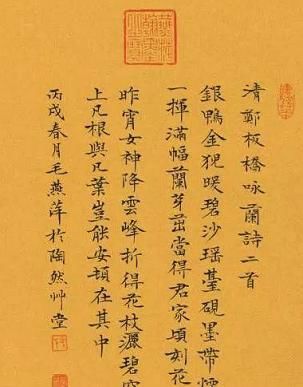 清鄭板橋咏蘭詩二首
銀鴨金猊暖碧沙瑶臺硯墨帶煙
一揮滿幅蘭芽茁當得君家頃刻花
昨宵女神降雲峰折得花枝灑碧空
上凡根與凡葉豈能安頓在其中
丙戌春月毛燕萍於陶然艸堂